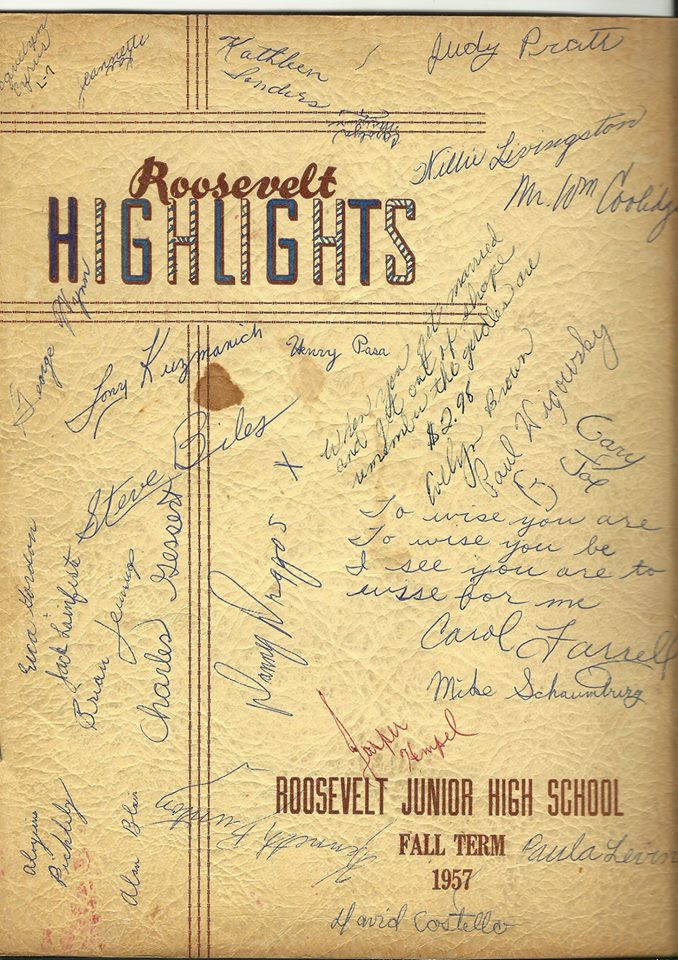 Jeannette
Kathleen
Sanders
Judy Pratt
Willie Livingston
Mr. Wm Coolidge
Roosevelt
HIGHLIGHTS
Wynn
Tony Kuzmanich
Henry Pasa
When you get married
and get out of shape
remember the girdles are
$2.98
Evelyn Brown
Paul Wigowsky
Gary
Fox
Steve Biles
X
To wise you are
To wise you be
I see you are to
wisse for me
Carol Farrell
Mike Schaumburg
Erica Gordon
Jack
Brian
Charles Gessert
Danny Driggos
Jasper
Hempel
ROOSEVELT JUNIOR HIGH SCHOOL
FALL TERM
1957
Paula Levin
Kenneth
Alan Blair
David Costello